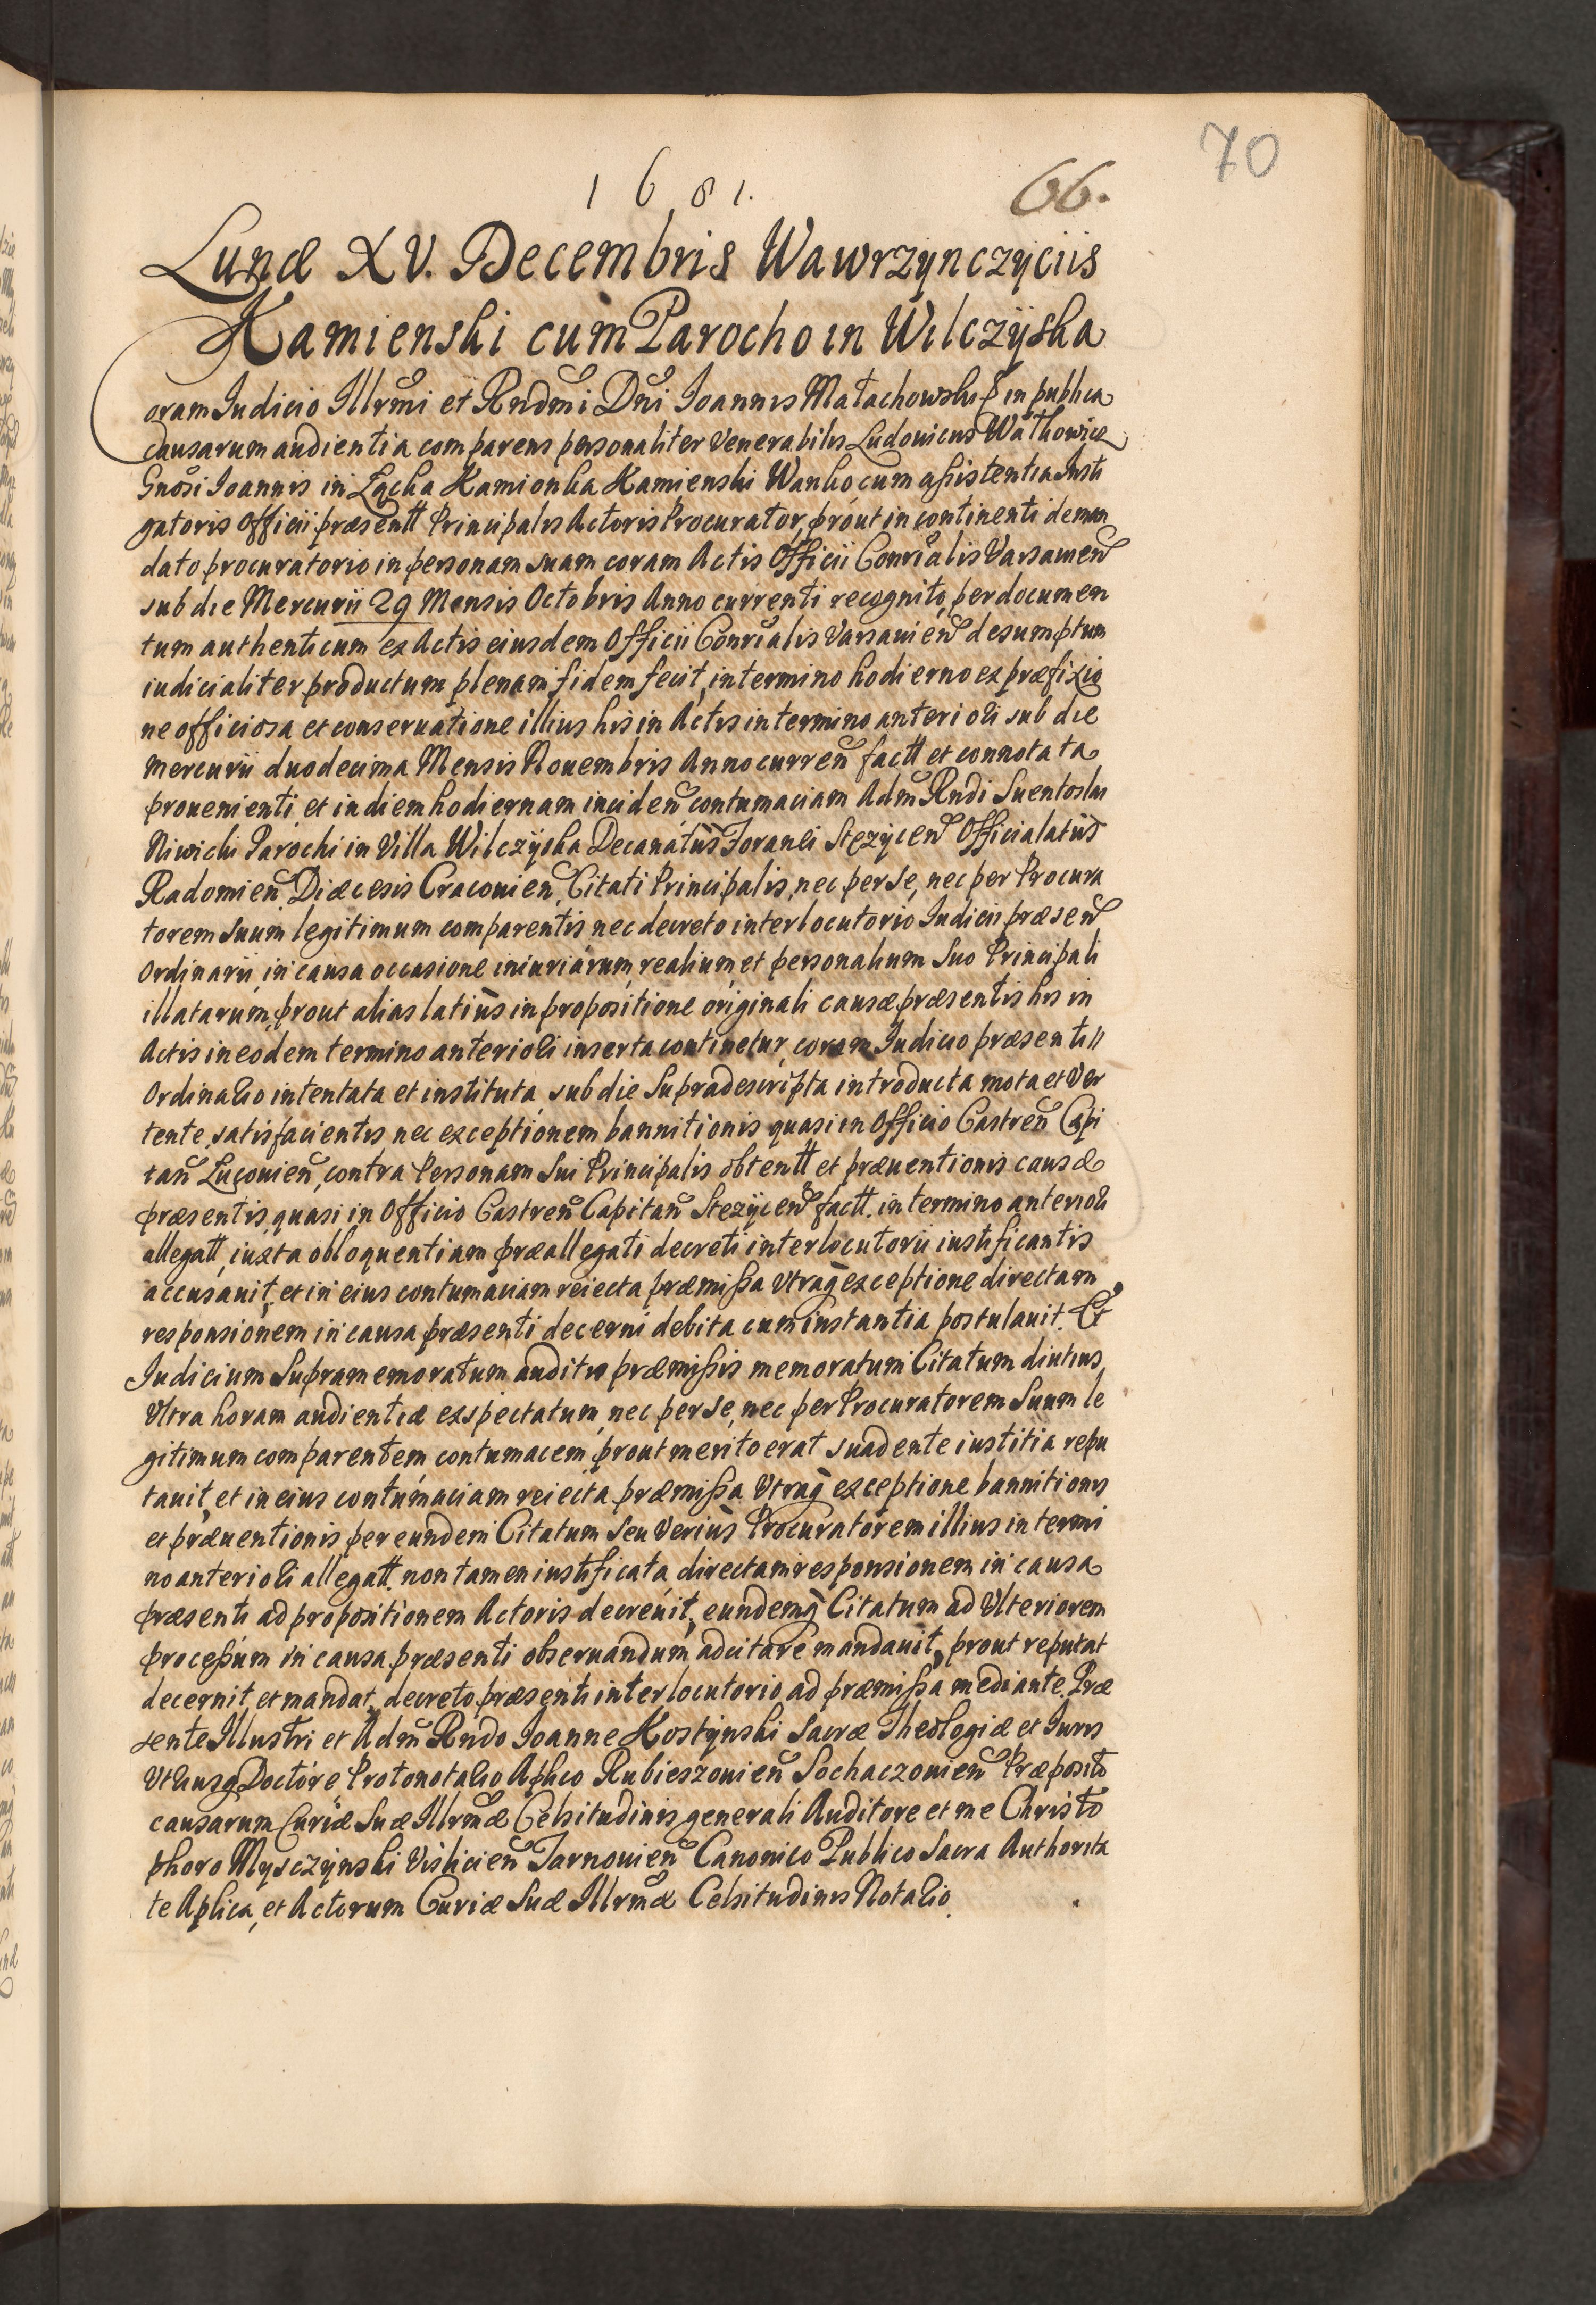 70
1681.
66.
Lunæ XV. Decembris Wawrzynczyciis
Kamienski cum Parocho in Wilczÿska
Coram Iudicio Illrmi et Rndmi Dni Ioannis Małachowski &c in publica
causarum audientia comparens personaliter Venerabilis Ludouicus Wałkowicz
Gnosi Ioannis in Łącka Kamionka Kamienski cum assistentia Insti
gatoris Officii præsentt Principalis Actoris Procurator, prout in continenti de man
dato procuratorio in personam suam coram Actis Officii Conrialis Varsauien
sub die Mercurii 29 Mensis Octobris Anno currenti recognito, per documen
tum authenticum ex Actis eiusdem Officii Conrialis Varsauien desumptum
iudicialiter productum plenam fidem fecit, in termino hodierno ex præfixio
ne officiosa et conseruatione illius his in Actis in termino anteriori sub die
Mercurii duodecima Mensis Nouembris Anno curren factt et connotata
prouenienti et in diem hodiernam inciden contumaciam Adm Rndi Suentoslai
Niwicki Parochi in Villa Wilczÿska Decanatûs Foranei Stezÿcen Officialatûs
Radomien Diæcesis Cracouien, Citati Principalis, nec per se, nec per Procura
torem suum legitimum comparentis nec decreto interlocutorio Iudicii præsen
Ordinarii, in causa occasione iniuriarum, realium, et personalium Suo Principali
illatarum, prout alias latiùs in propositione originali causæ præsentis his in
Actis in eodem termino anteriori inserta continetur, coram Iudicio præsenti
Ordinario intentata et instituta, sub die Supradescripta introducta mota et Ver
tente, satisfacientis nec exceptionem bannitionis quasi in Officio Castren Capi
tan Lucouien, contra Personam Sui Principalis obtentt et præuentionis causæ
præsentis quasi in Officio Castren Capitan Stezÿcen factt. in termino anteriori
allegatt, iuxta obloquentiam præallegati decreti interlocutorii iustificantis
accusauit, et in eius contumaciam reiecta præmissa Vtraq exceptione directam
responsionem in causa præsenti decerni debita cum instantia postulauit. Et
Iudicium Supramemoratum auditis præmissis memoratum Citatum diutius,
Vltra horam audientiæ exspectatum, nec per se, nec per Procuratorem Suum le
gitimum comparentem, contumacem, prout merito erat suadente iustitia repu
tauit, et in eius contumaciam reiecta præmissa Vtraq exceptione bannitionis
et præuentionis per eundem Citatum seu Verius Procuratorem illius in termi
no anteriori allegatt. non tamen iustificata, directam responsionem in causa
præsenti ad propositionem Actoris decreuit, eundemq Citatum ad Vlteriorem
processum in causa præsenti obseruandum, adcitare mandauit, prout reputat
decernit, et mandat, decreto præsenti interlocutorio ad præmissa mediante. Præ
sente Illustri et Adm Rndo Ioanne Kostÿnski Sacræ Theologiæ et Iuris
Vtriusq Doctore Protonotario Aplico Rubieszouien Sochaczouien Præposito
causarum Curiæ Suæ Illrmæ Celsitudinis generali Auditore et me Christo
phoro Mÿsczÿnski Vislicien Tarnouien Canonico Publico Sacra Authorita
te Aplica, et Actorum Curiæ Suæ Illrmæ Celsitudinis Notario.